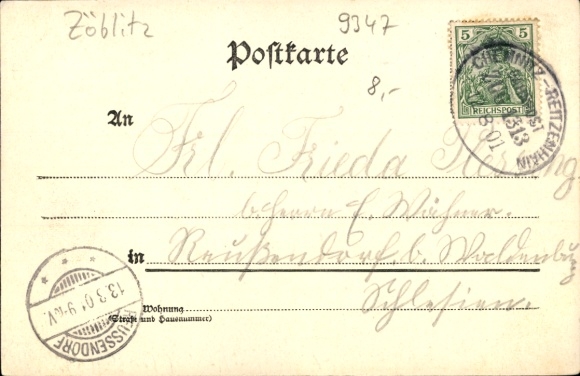 Zöblitz
9347
Postkarte
8,-
5 5
REICHSPOST
CHEMNITZ-REITZENHAIN
BAHNPOST
313
8 01
An
Frl. Frieda
b. Herrn E. Wähner.
in
Reußendorf b. Waldenburg
Schlesien.
Wohnung
(Straße und Hausnummer)
13.3.01 9-10V.
REUSSENDORF